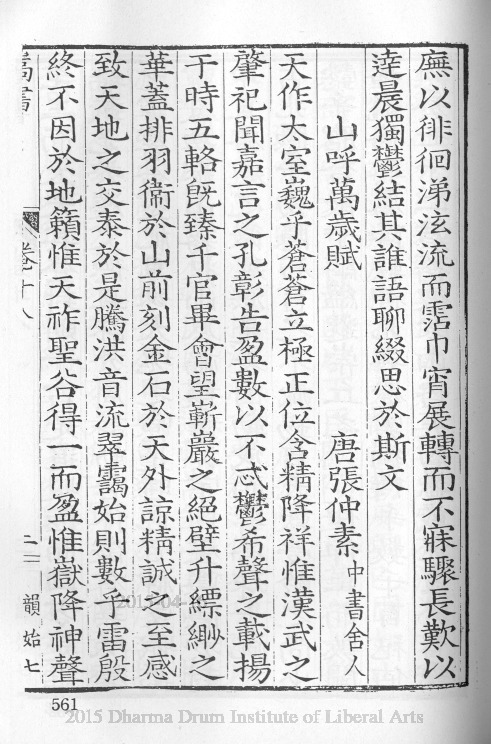 廡以徘徊涕泫流而霑巾宵展轉而不寐驟長歎以
達晨獨鬱結其誰語聊綴思於斯文
山呼萬歲賦 唐張仲素中書舍人
天作太室巍乎蒼蒼立極正位含精降祥惟漢武之
肇祀聞嘉言之孔彰告盈數以不忒鬱希聲之載揚
于時五輅旣臻千官畢會望嶄巖之絕壁升縹緲之
華蓋排羽衞於山前刻金石於天外諒精誠之至感
致天地之交泰於是騰洪音流翠靄始則數乎雷殷
終不因於地籟惟天祚聖谷得一而盈惟嶽降神聲
嵩書 卷十八 二 韻始七
561
2015 Dharma Drum Institute of Liberal Arts